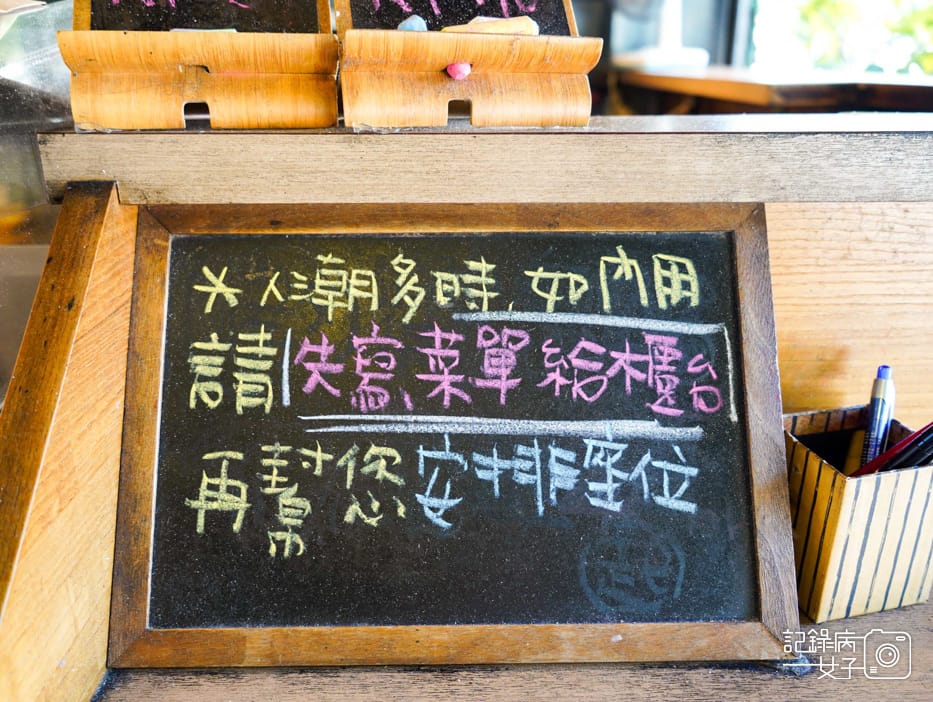 ※人潮多時,如內用
請先寫菜單給櫃台
再幫您安排座位
記錄病
女子